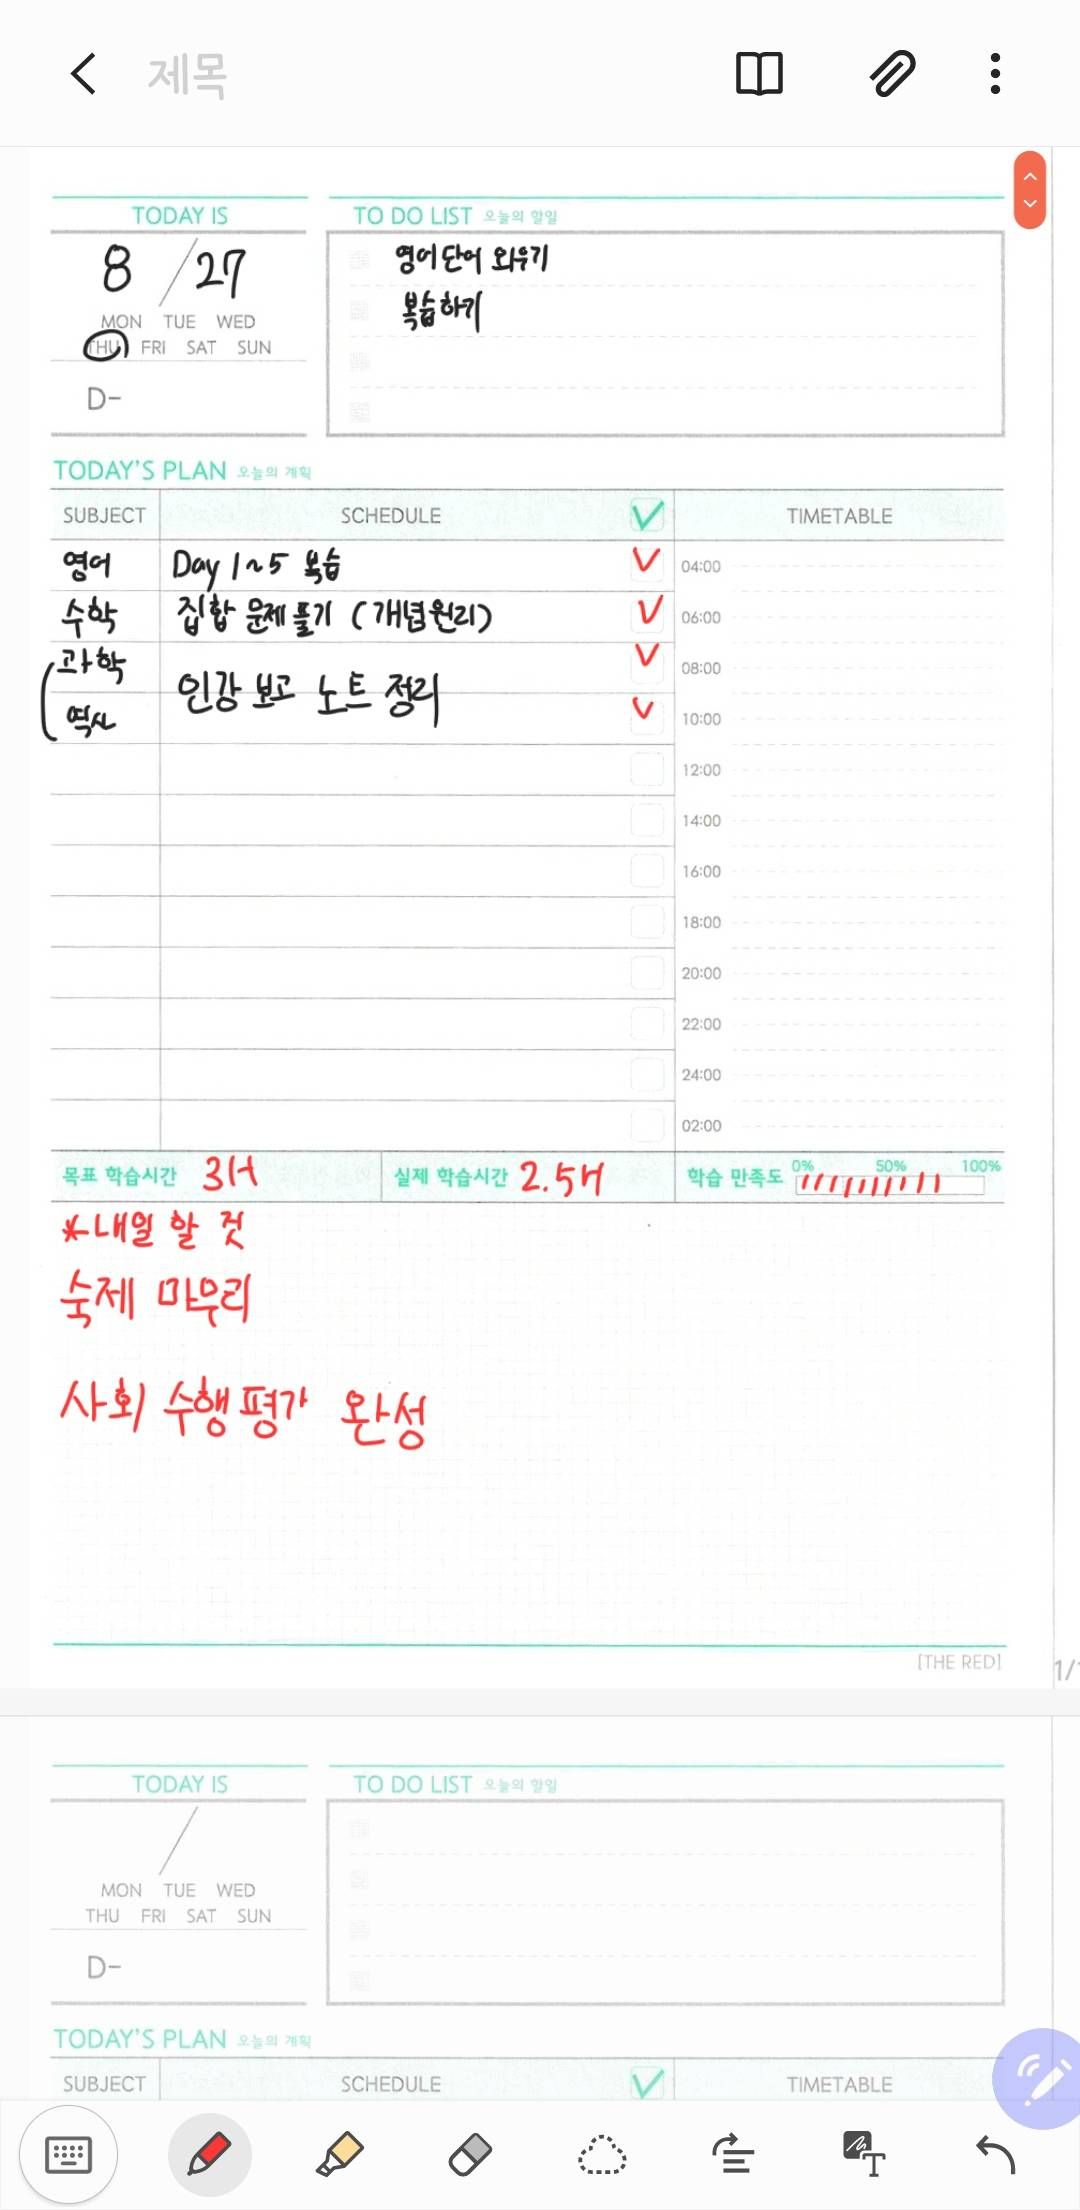 제목
TODAY IS
8 / 27
MON TUE WED
THU FRI SAT SUN
D-
TO DO LIST 오늘의 할일
영어단어 외우기
복습하기
TODAY'S PLAN 오늘의 계획
SUBJECT SCHEDULE TIMETABLE
영어 Day 1~5 복습 04:00
수학 집합 문제 풀기 (개념원리) 06:00
과학 08:00
인강 보고 노트 정리
역사 10:00
12:00
14:00
16:00
18:00
20:00
22:00
24:00
02:00
목표 학습시간 3H 실제 학습시간 2.5H 학습 만족도 0% 50% 100%
*내일 할 것
숙제 마무리
사회 수행평가 완성
[THE RED]
TODAY IS
MON TUE WED
THU FRI SAT SUN
D-
TO DO LIST 오늘의 할일
TODAY'S PLAN 오늘의 계획
SUBJECT SCHEDULE TIMETABLE
T